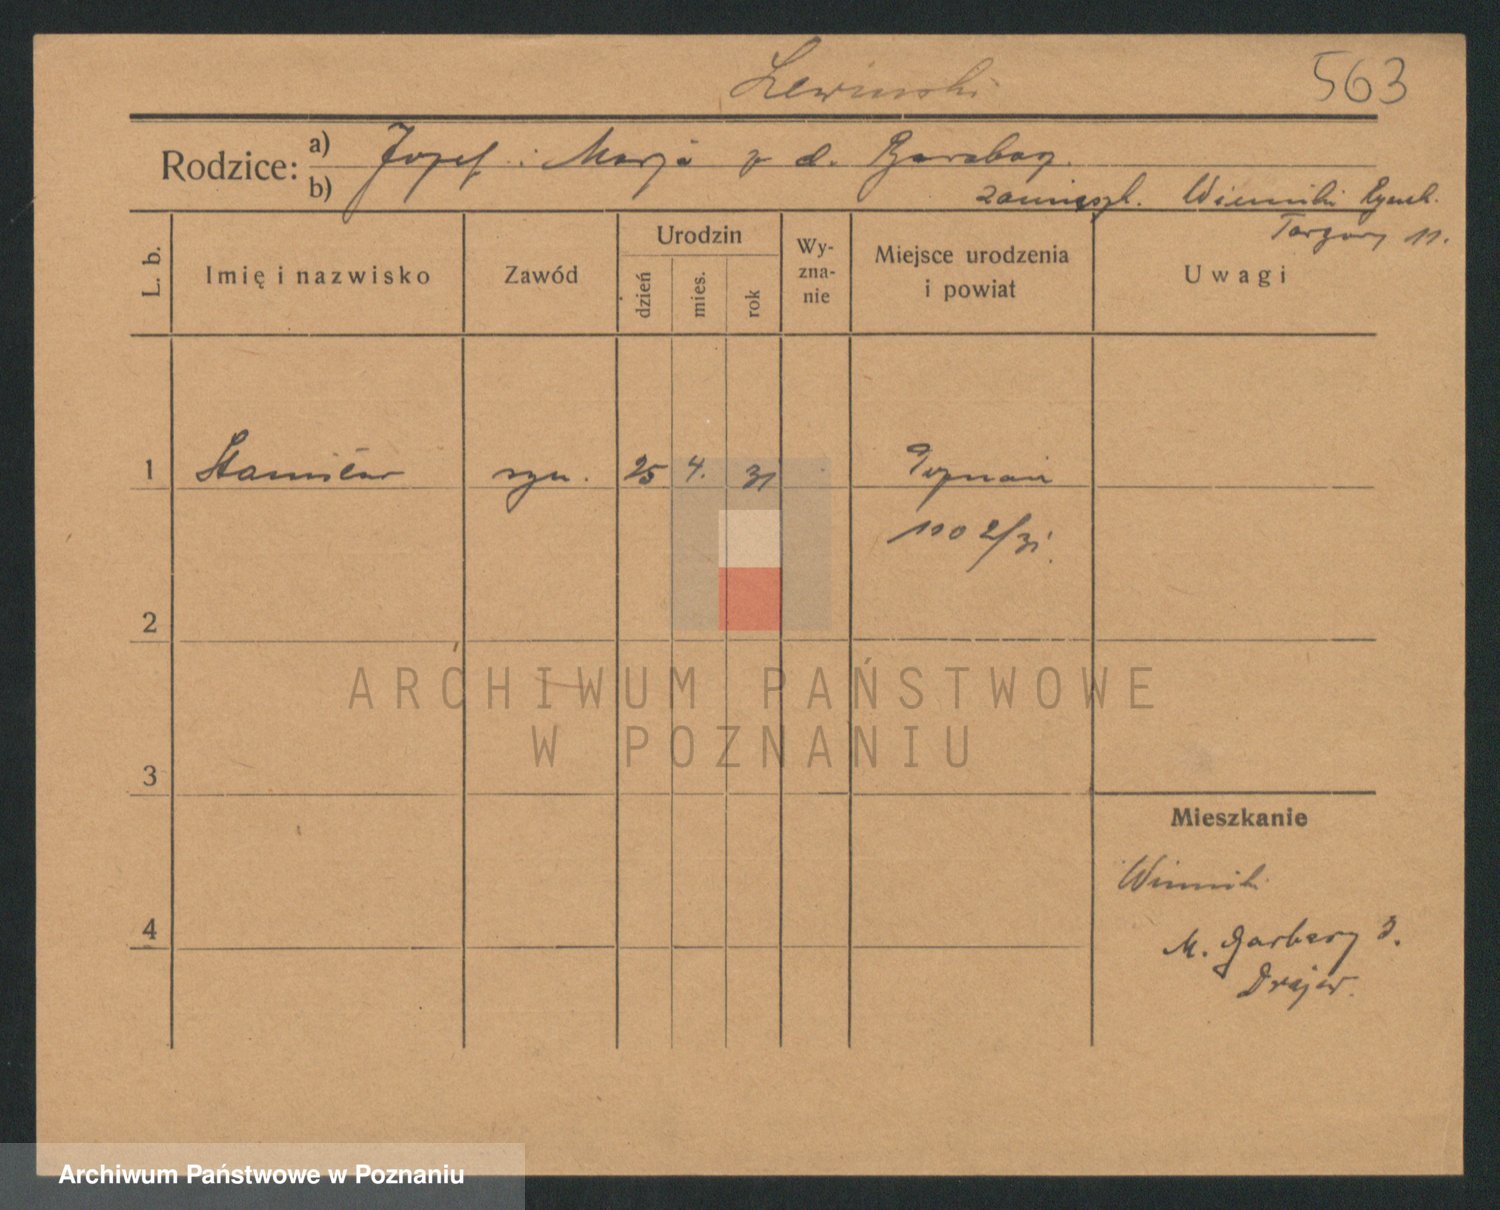 Lewinski
563
Rodzice:
a) Józef i Marja z d. Barabasz.
b)
zamieszk. Winniki Rynek.
Targowy 11.
L. b.
Imię i nazwisko
Zawód
Urodzin
dzień
mies.
rok
Wy-
zna-
nie
Miejsce urodzenia
i powiat
Uwagi
1 Stanisław syn. 25 4. 31 Poznań
1102/31.
2
3
4
Mieszkanie
Winniki
M. Garbary 3.
ARCHIWUM PAŃSTWOWE
W POZNANIU
Archiwum Państwowe w Poznaniu